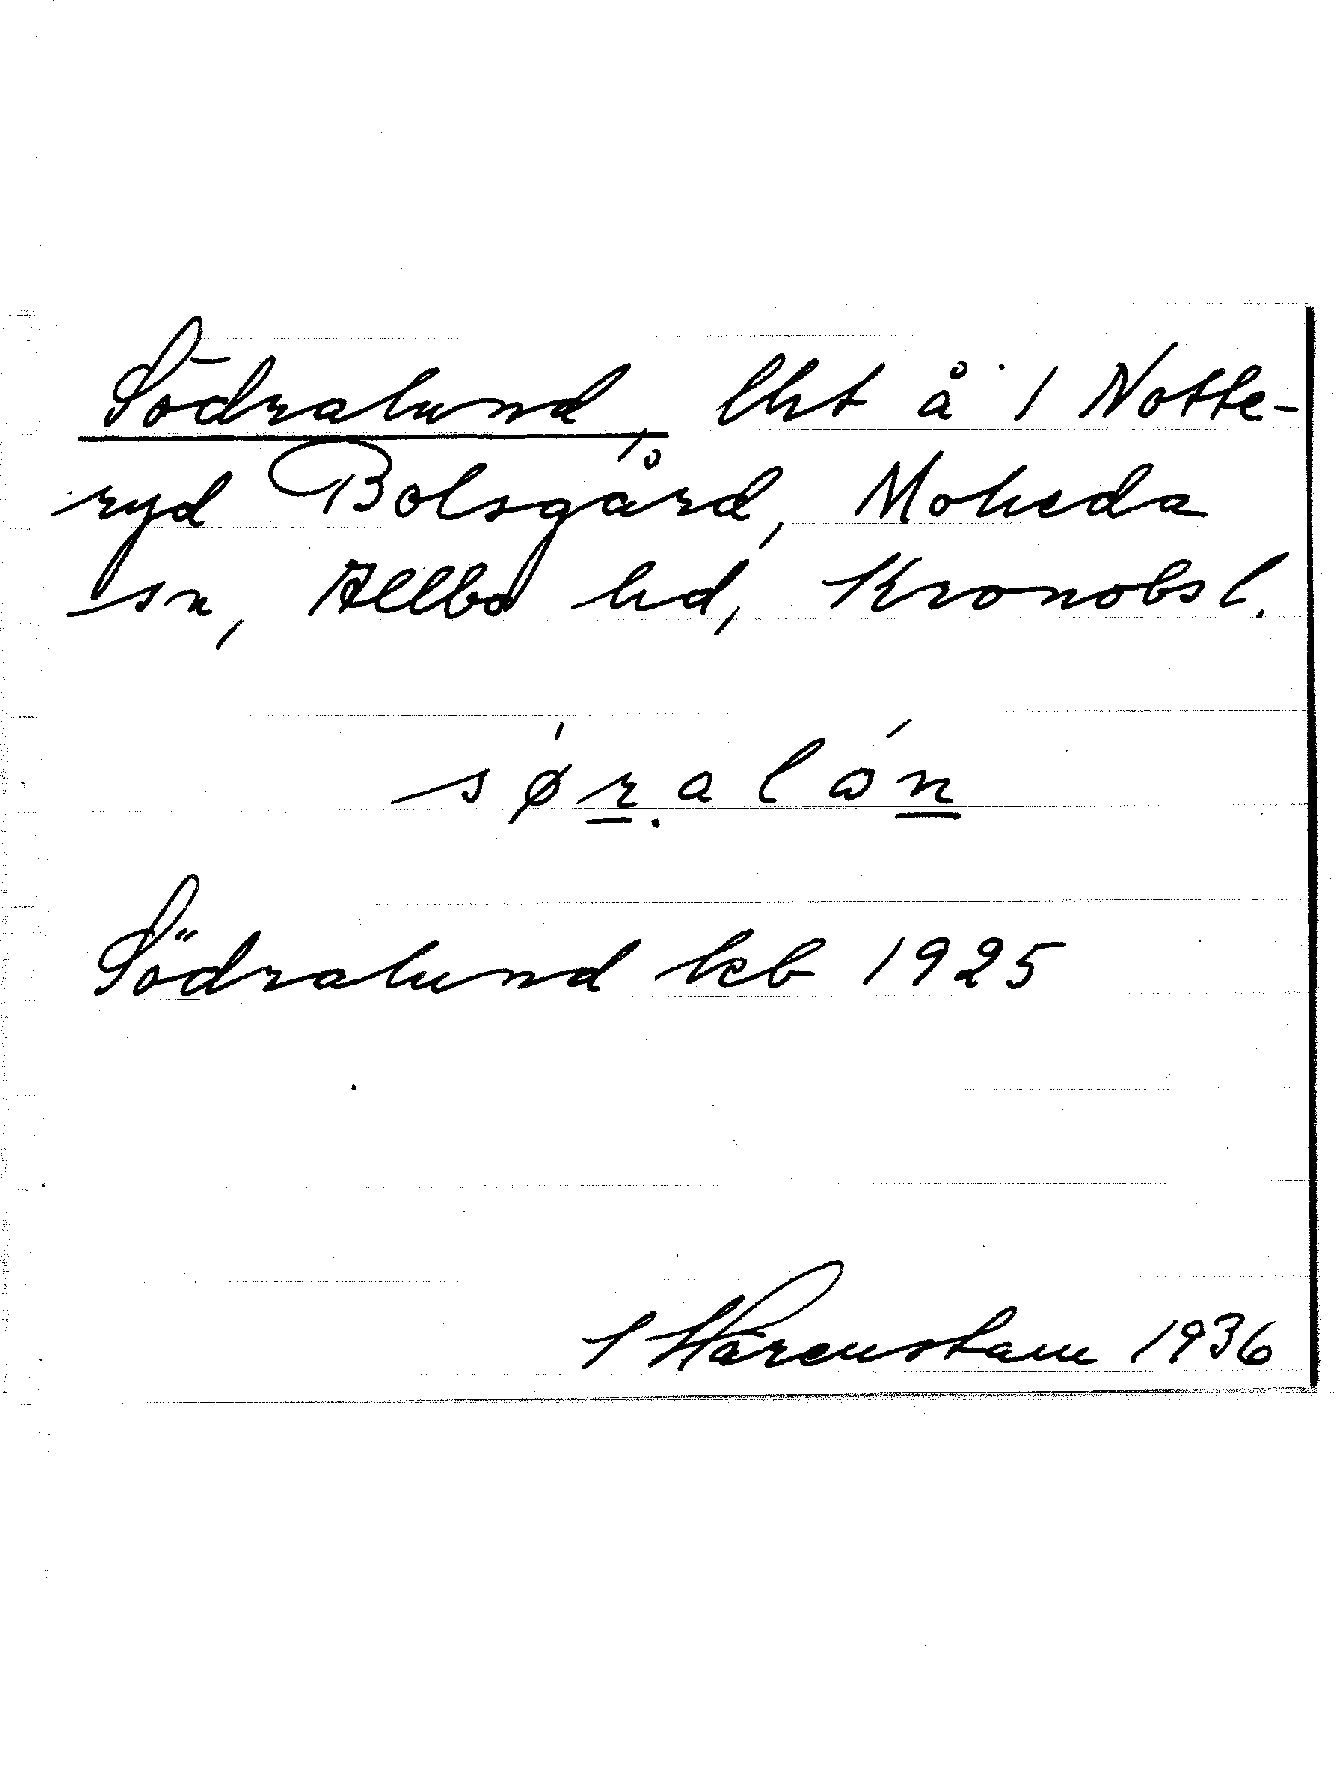 Södralund, lht å 1 Notte-
ryd Bolsgård, Moheda
sn, Allbo hd, Kronobs l.
sø̀ṟ.alón̲
Södralund kb 1925
S Härenstam 1936